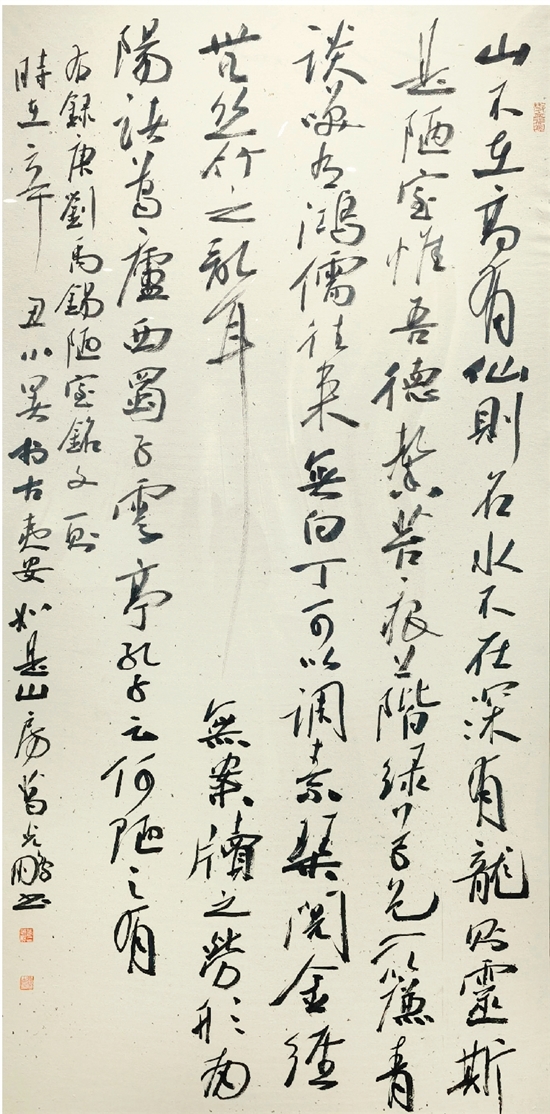 山不在高有仙則名水不在深有龍則靈斯
是陋室惟吾德馨苔痕上階緑草色入簾青
談笑有鴻儒往來無白丁可以調素琴閱金經
無絲竹之亂耳無案牘之勞形南
陽諸葛廬西蜀子雲亭孔子云何陋之有
右録唐劉禹錫陋室銘文一則
時在辛丑小暑於古夷安如是山房葛光鵬書